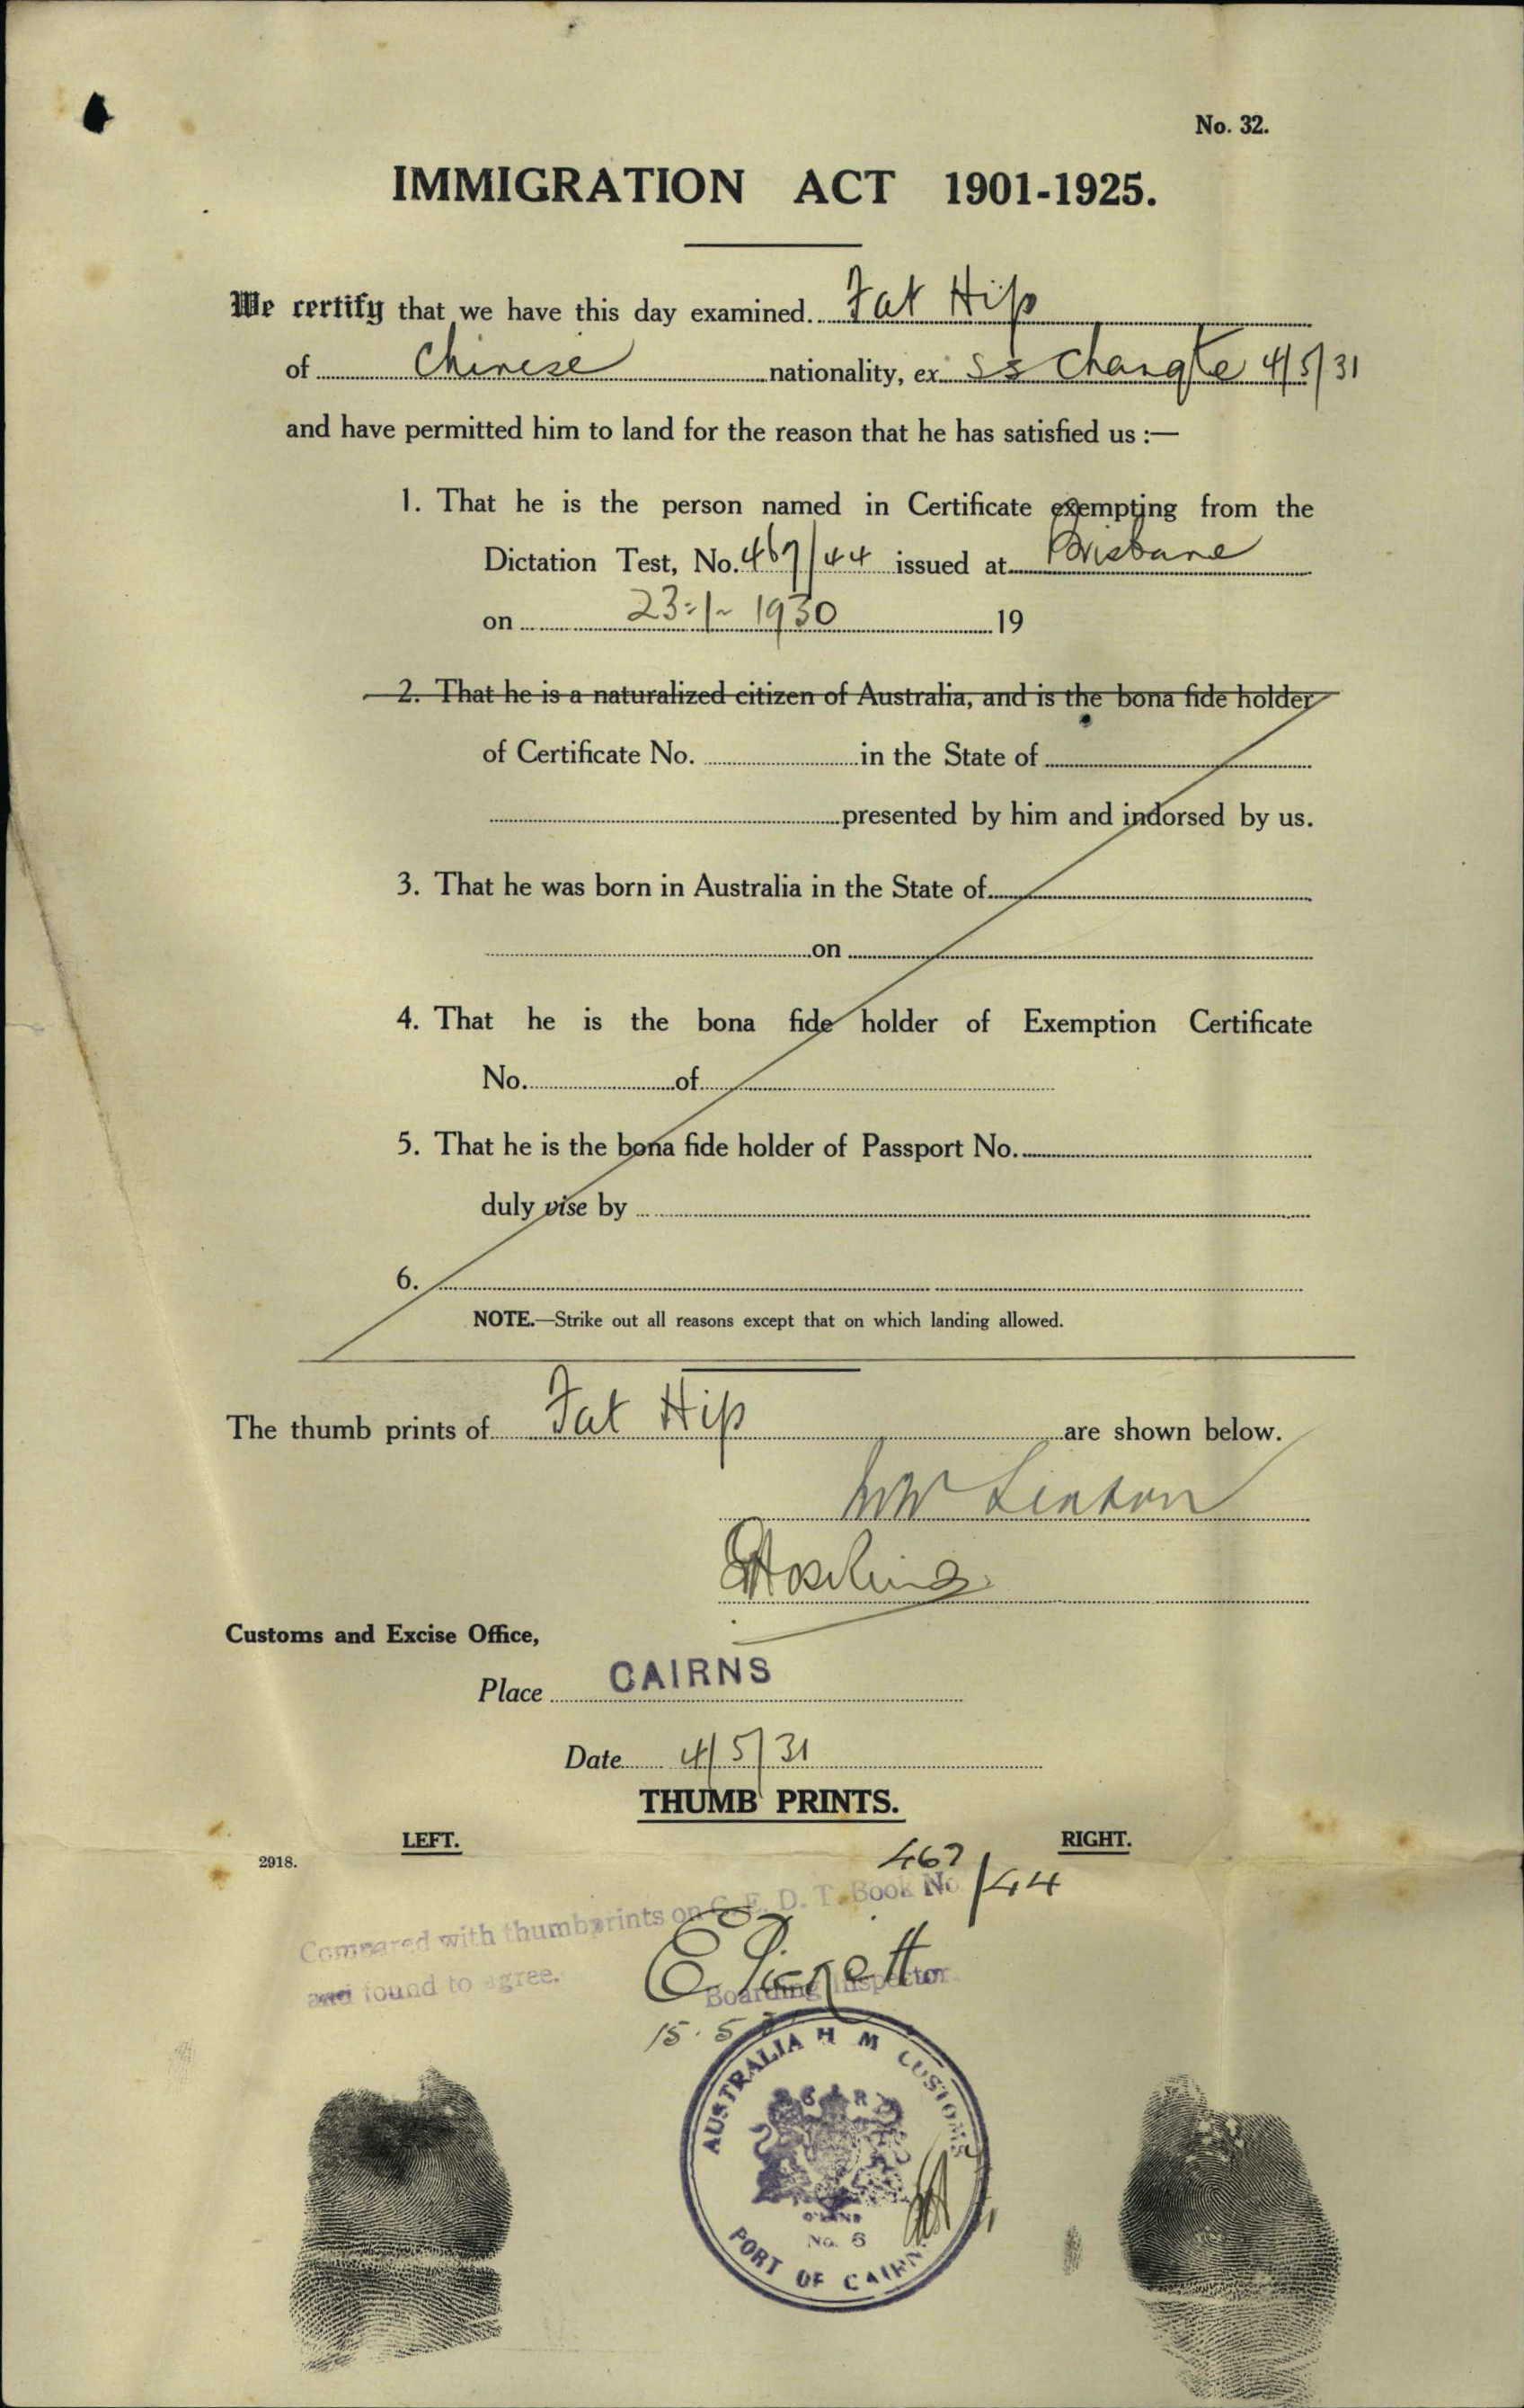 No. 32.
IMMIGRATION ACT 1901-1925.
We certify that we have this day examined Fat Hip
of Chinese nationality, ex SS Changte 4/5/31
and have permitted him to land for the reason that he has satisfied us :—
1. That he is the person named in Certificate exempting from the
Dictation Test, No. 467/44 issued at Brisbane
on 23-1-1930 19
2. That he is a naturalized citizen of Australia, and is the bona fide holder
of Certificate No. in the State of
presented by him and indorsed by us.
3. That he was born in Australia in the State of
on
4. That he is the bona fide holder of Exemption Certificate
No. of
5. That he is the bona fide holder of Passport No.
duly vise by
6.
NOTE.—Strike out all reasons except that on which landing allowed.
The thumb prints of Fat Hip are shown below.
Linton
Customs and Excise Office,
Place CAIRNS
Date 4/5/31
THUMB PRINTS.
LEFT. RIGHT.
2918.
467/44
Compared with thumbprints on C. E. D. T. Book No
and found to agree.
Boarding Inspector
15.5
AUSTRALIA H M CUSTOMS
G R
Q'LAND
No. 6
PORT OF CAIRNS